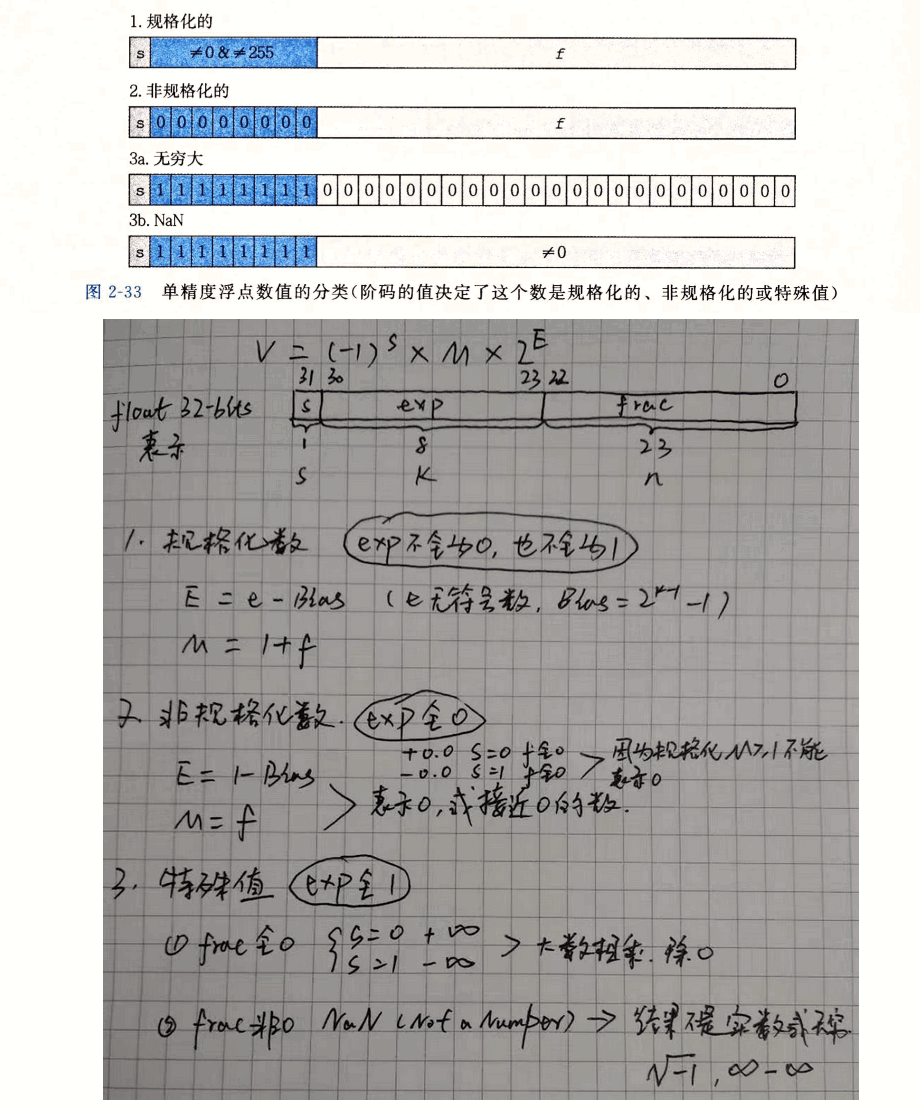 1. 规格化的
s ≠0 & ≠255 f
2. 非规格化的
s 0 0 0 0 0 0 0 0 f
3a. 无穷大
s 1 1 1 1 1 1 1 1 0 0 0 0 0 0 0 0 0 0 0 0 0 0 0 0 0 0 0 0 0 0 0
3b. NaN
s 1 1 1 1 1 1 1 1 ≠0
图 2-33 单精度浮点数值的分类(阶码的值决定了这个数是规格化的、非规格化的或特殊值)
V = (-1)^s × M × 2^E
31 30 23 22 0
float 32-bits s exp frac
表示 1 8 23
S K n
1. 规格化数 exp不全为0, 也不全为1
E = e - Bias (e无符号数, Bias = 2^(k-1) - 1)
M = 1+f
2. 非规格化数. exp全0
+0.0 S=0 f全0 > 因为规格化M≥1不能
-0.0 S=1 f全0 表示0
E = 1 - Bias
M = f > 表示0, 或接近0的数.
3. 特殊值 exp全1
① frac全0 { S=0 +∞ > 大数相乘. 除0
S=1 -∞
② frac非0 NaN (Not a Number) → 结果不是实数或无穷.
√-1, ∞-∞